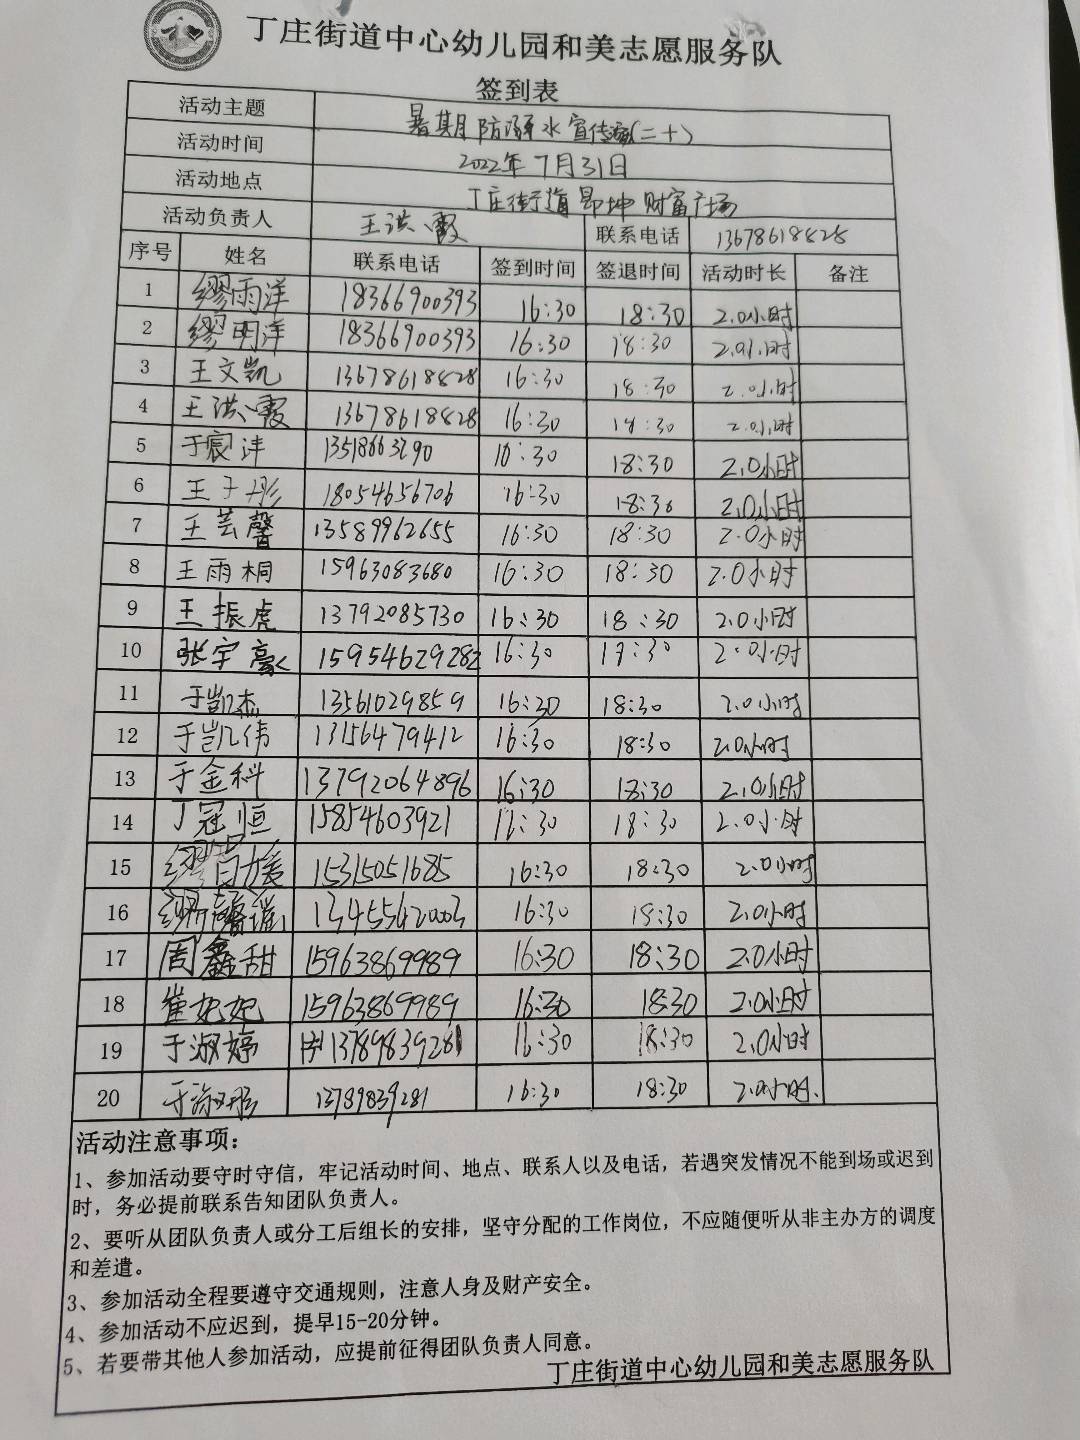 丁庄街道中心幼儿园和美志愿服务队
签到表
活动主题 暑期防溺水宣传(二十)
活动时间 2022年7月31日
活动地点 丁庄街道昂坤财富广场
活动负责人 王洪霞 联系电话 13678618828
序号 姓名 联系电话 签到时间 签退时间 活动时长 备注
1 缪雨洋 18366900393 16:30 18:30 2.0小时
2 缪明洋 18366900393 16:30 18:30 2.0小时
3 王文凯 13678618828 16:30 18:30 2.0小时
4 王洪霞 13678618828 16:30 18:30 2.0小时
5 于宸沣 13518663290 16:30 18:30 2.0小时
6 王子彤 18054656706 16:30 18:30 2.0小时
7 王芸馨 13589962655 16:30 18:30 2.0小时
8 王雨桐 15963083680 16:30 18:30 2.0小时
9 王振虎 13792085730 16:30 18:30 2.0小时
10 张宇豪 15954629282 16:30 18:30 2.0小时
11 于凯杰 13561029859 16:30 18:30 2.0小时
12 于凯伟 13156479412 16:30 18:30 2.0小时
13 于金科 13792064896 16:30 18:30 2.0小时
14 丁冠恒 15854603921 16:30 18:30 2.0小时
15 15315051685 16:30 18:30 2.0小时
16 13455620003 16:30 18:30 2.0小时
17 周鑫甜 15963869989 16:30 18:30 2.0小时
18 崔妃妃 15963869989 16:30 18:30 2.0小时
19 于淑婷 13789839281 16:30 18:30 2.0小时
20 13789839281 16:30 18:30 2.0小时
活动注意事项：
1、参加活动要守时守信，牢记活动时间、地点、联系人以及电话，若遇突发情况不能到场或迟到
时，务必提前联系告知团队负责人。
2、要听从团队负责人或分工后组长的安排，坚守分配的工作岗位，不应随便听从非主办方的调度
和差遣。
3、参加活动全程要遵守交通规则，注意人身及财产安全。
4、参加活动不应迟到，提早15-20分钟。
5、若要带其他人参加活动，应提前征得团队负责人同意。
丁庄街道中心幼儿园和美志愿服务队